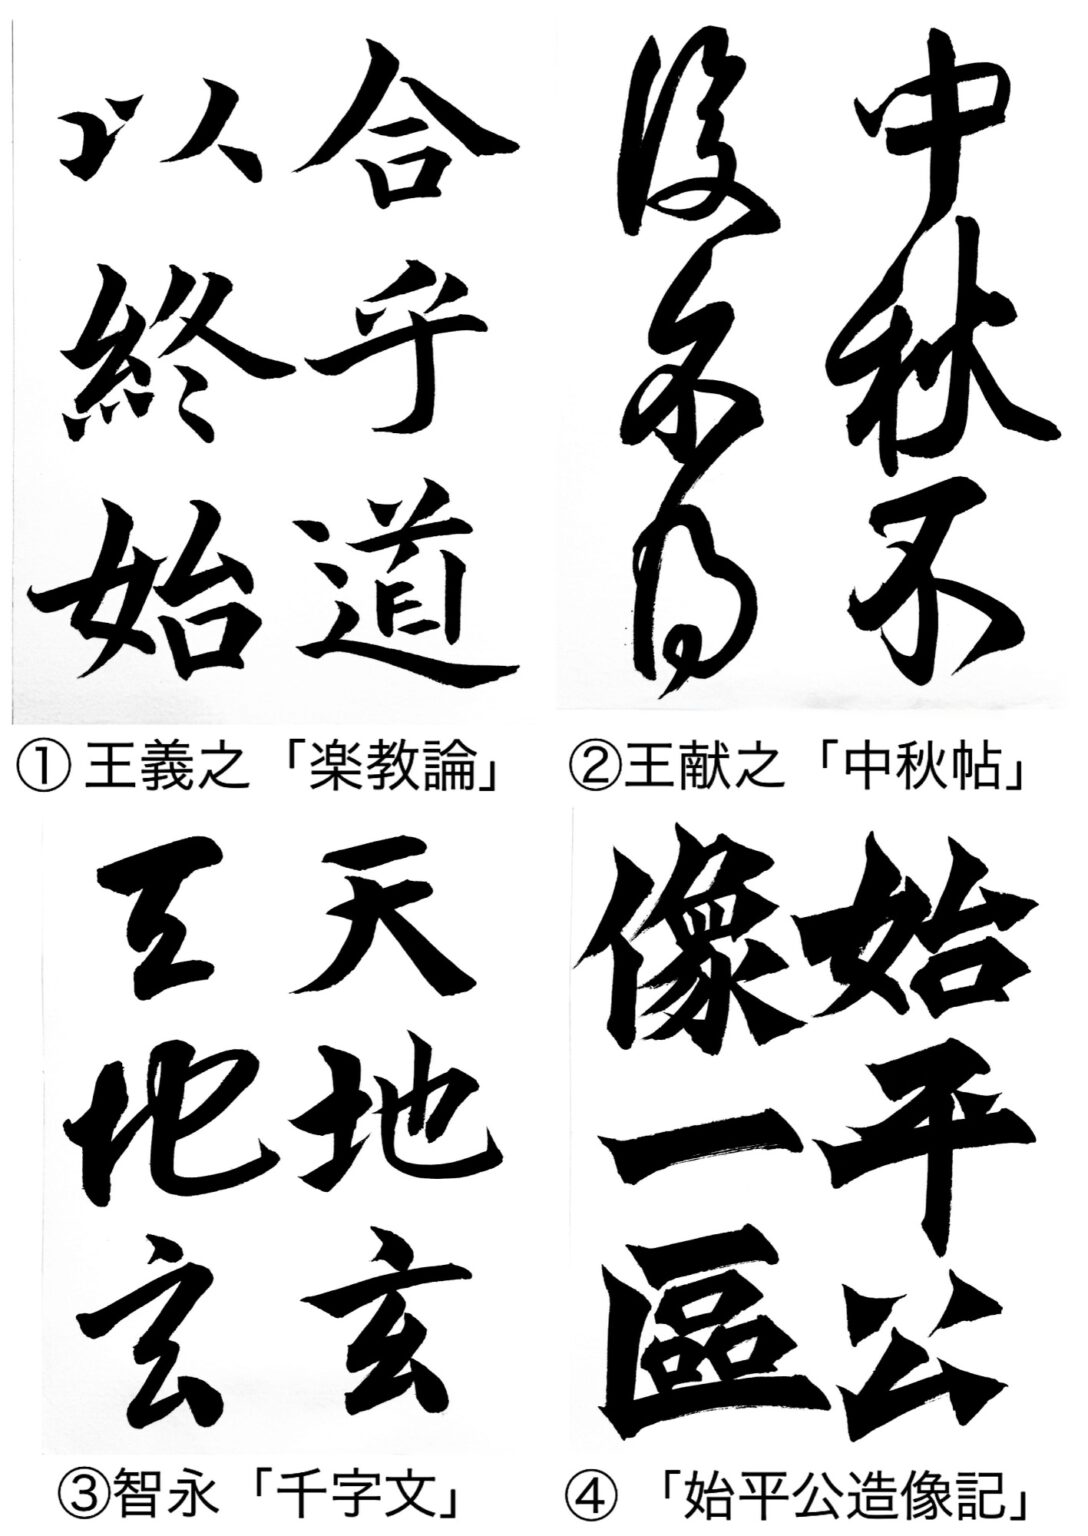 合乎道
以終始
① 王義之「楽教論」
中秋不
復不得
②王献之「中秋帖」
天地玄
天地玄
③智永「千字文」
始平公
像一區
④ 「始平公造像記」